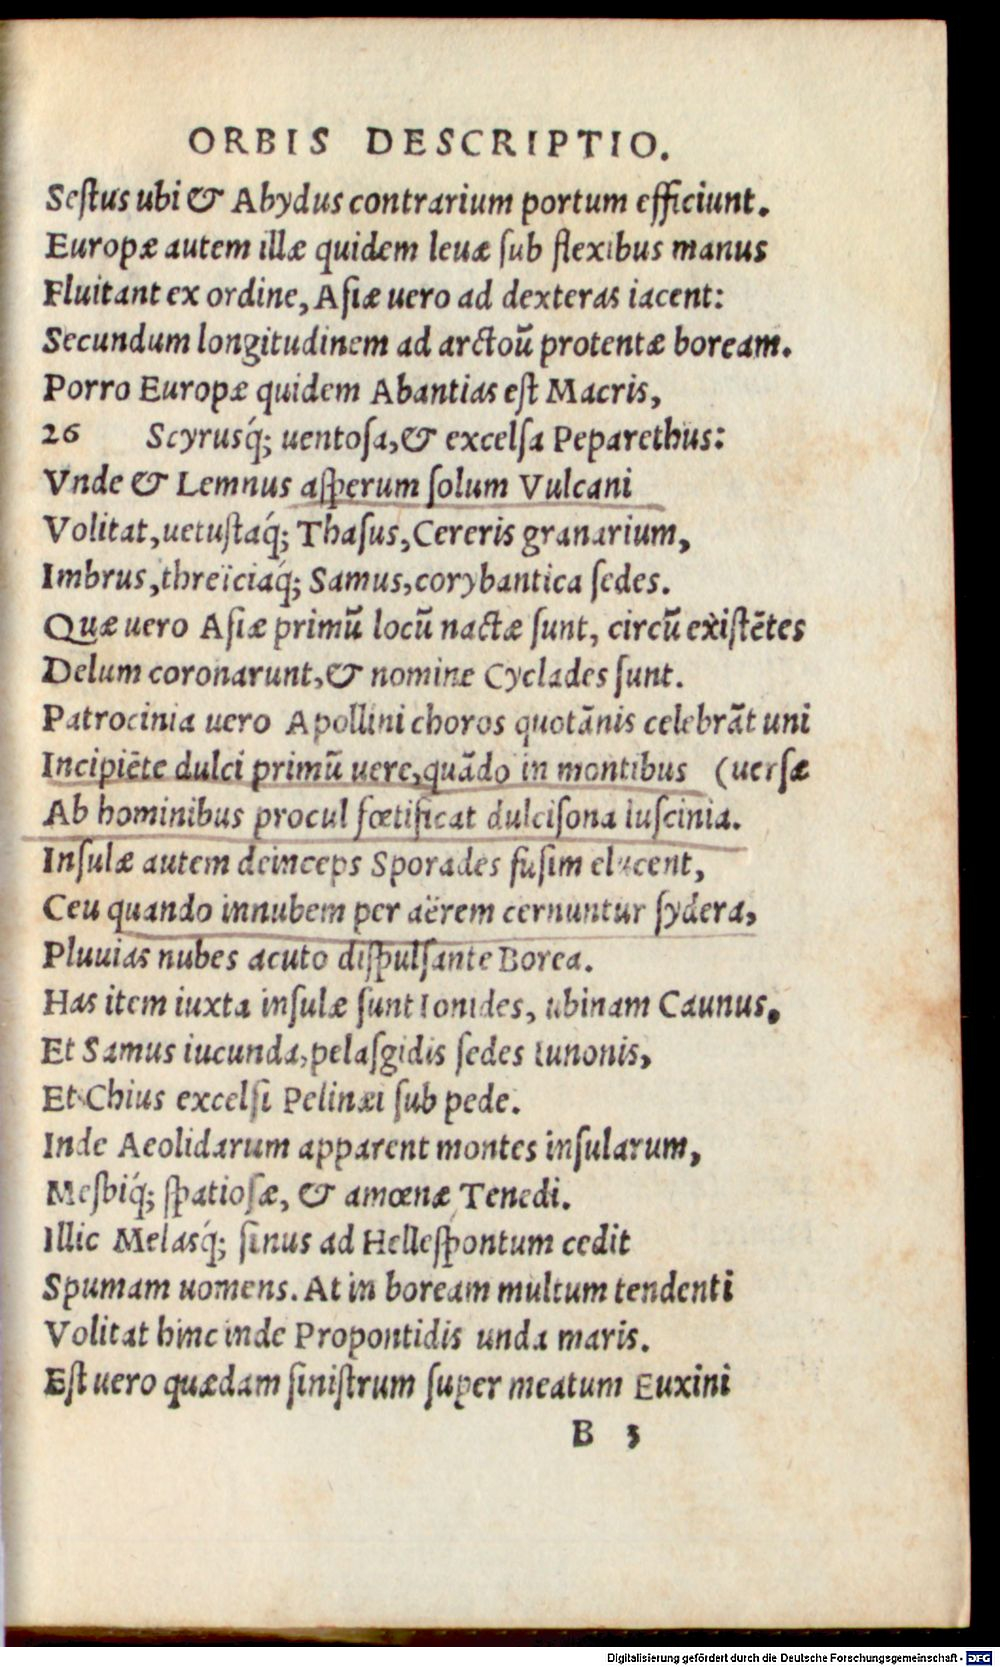 ORBIS DESCRIPTIO.
Seſtus ubi & Abydus contrarium portum efficiunt.
Europæ autem illæ quidem leuæ ſub flexibus manus
Fluitant ex ordine, Aſiæ uero ad dexteras iacent:
Secundum longitudinem ad arctoũ protentæ boream.
Porro Europæ quidem Abantias eſt Macris,
26 Scyrusq́; uentoſa, & excelſa Peparethus:
Vnde & Lemnus aſperum ſolum Vulcani
Volitat, uetuſtaq́; Thaſus, Cereris granarium,
Imbrus, threïciaq́; Samus, corybantica ſedes.
Quæ uero Aſiæ primũ locũ nactæ ſunt, circũ exiſtẽtes
Delum coronarunt, & nomine Cyclades ſunt.
Patrocinia uero Apollini choros quotãnis celebrãt uni
Incipiẽte dulci primũ uere, quãdo in montibus (uerſæ
Ab hominibus procul fœtificat dulciſona luſcinia.
Inſulæ autem deinceps Sporades fuſim elucent,
Ceu quando innubem per aërem cernuntur ſydera,
Pluuias nubes acuto diſpulſante Borea.
Has item iuxta inſulæ ſunt Ionides, ubinam Caunus.
Et Samus iucunda, pelaſgidis ſedes Iunonis,
Et Chius excelſi Pelinæi ſub pede.
Inde Aeolidarum apparent montes inſularum,
Meſbiq́; ſpatioſæ, & amœnæ Tenedi.
Illic Melasq́; ſinus ad Helleſpontum cedit
Spumam uomens. At in boream multum tendenti
Volitat hinc inde Propontidis unda maris.
Eſt uero quædam ſiniſtrum ſuper meatum Euxini
B 3
Digitalisierung gefördert durch die Deutsche Forschungsgemeinschaft - DFG